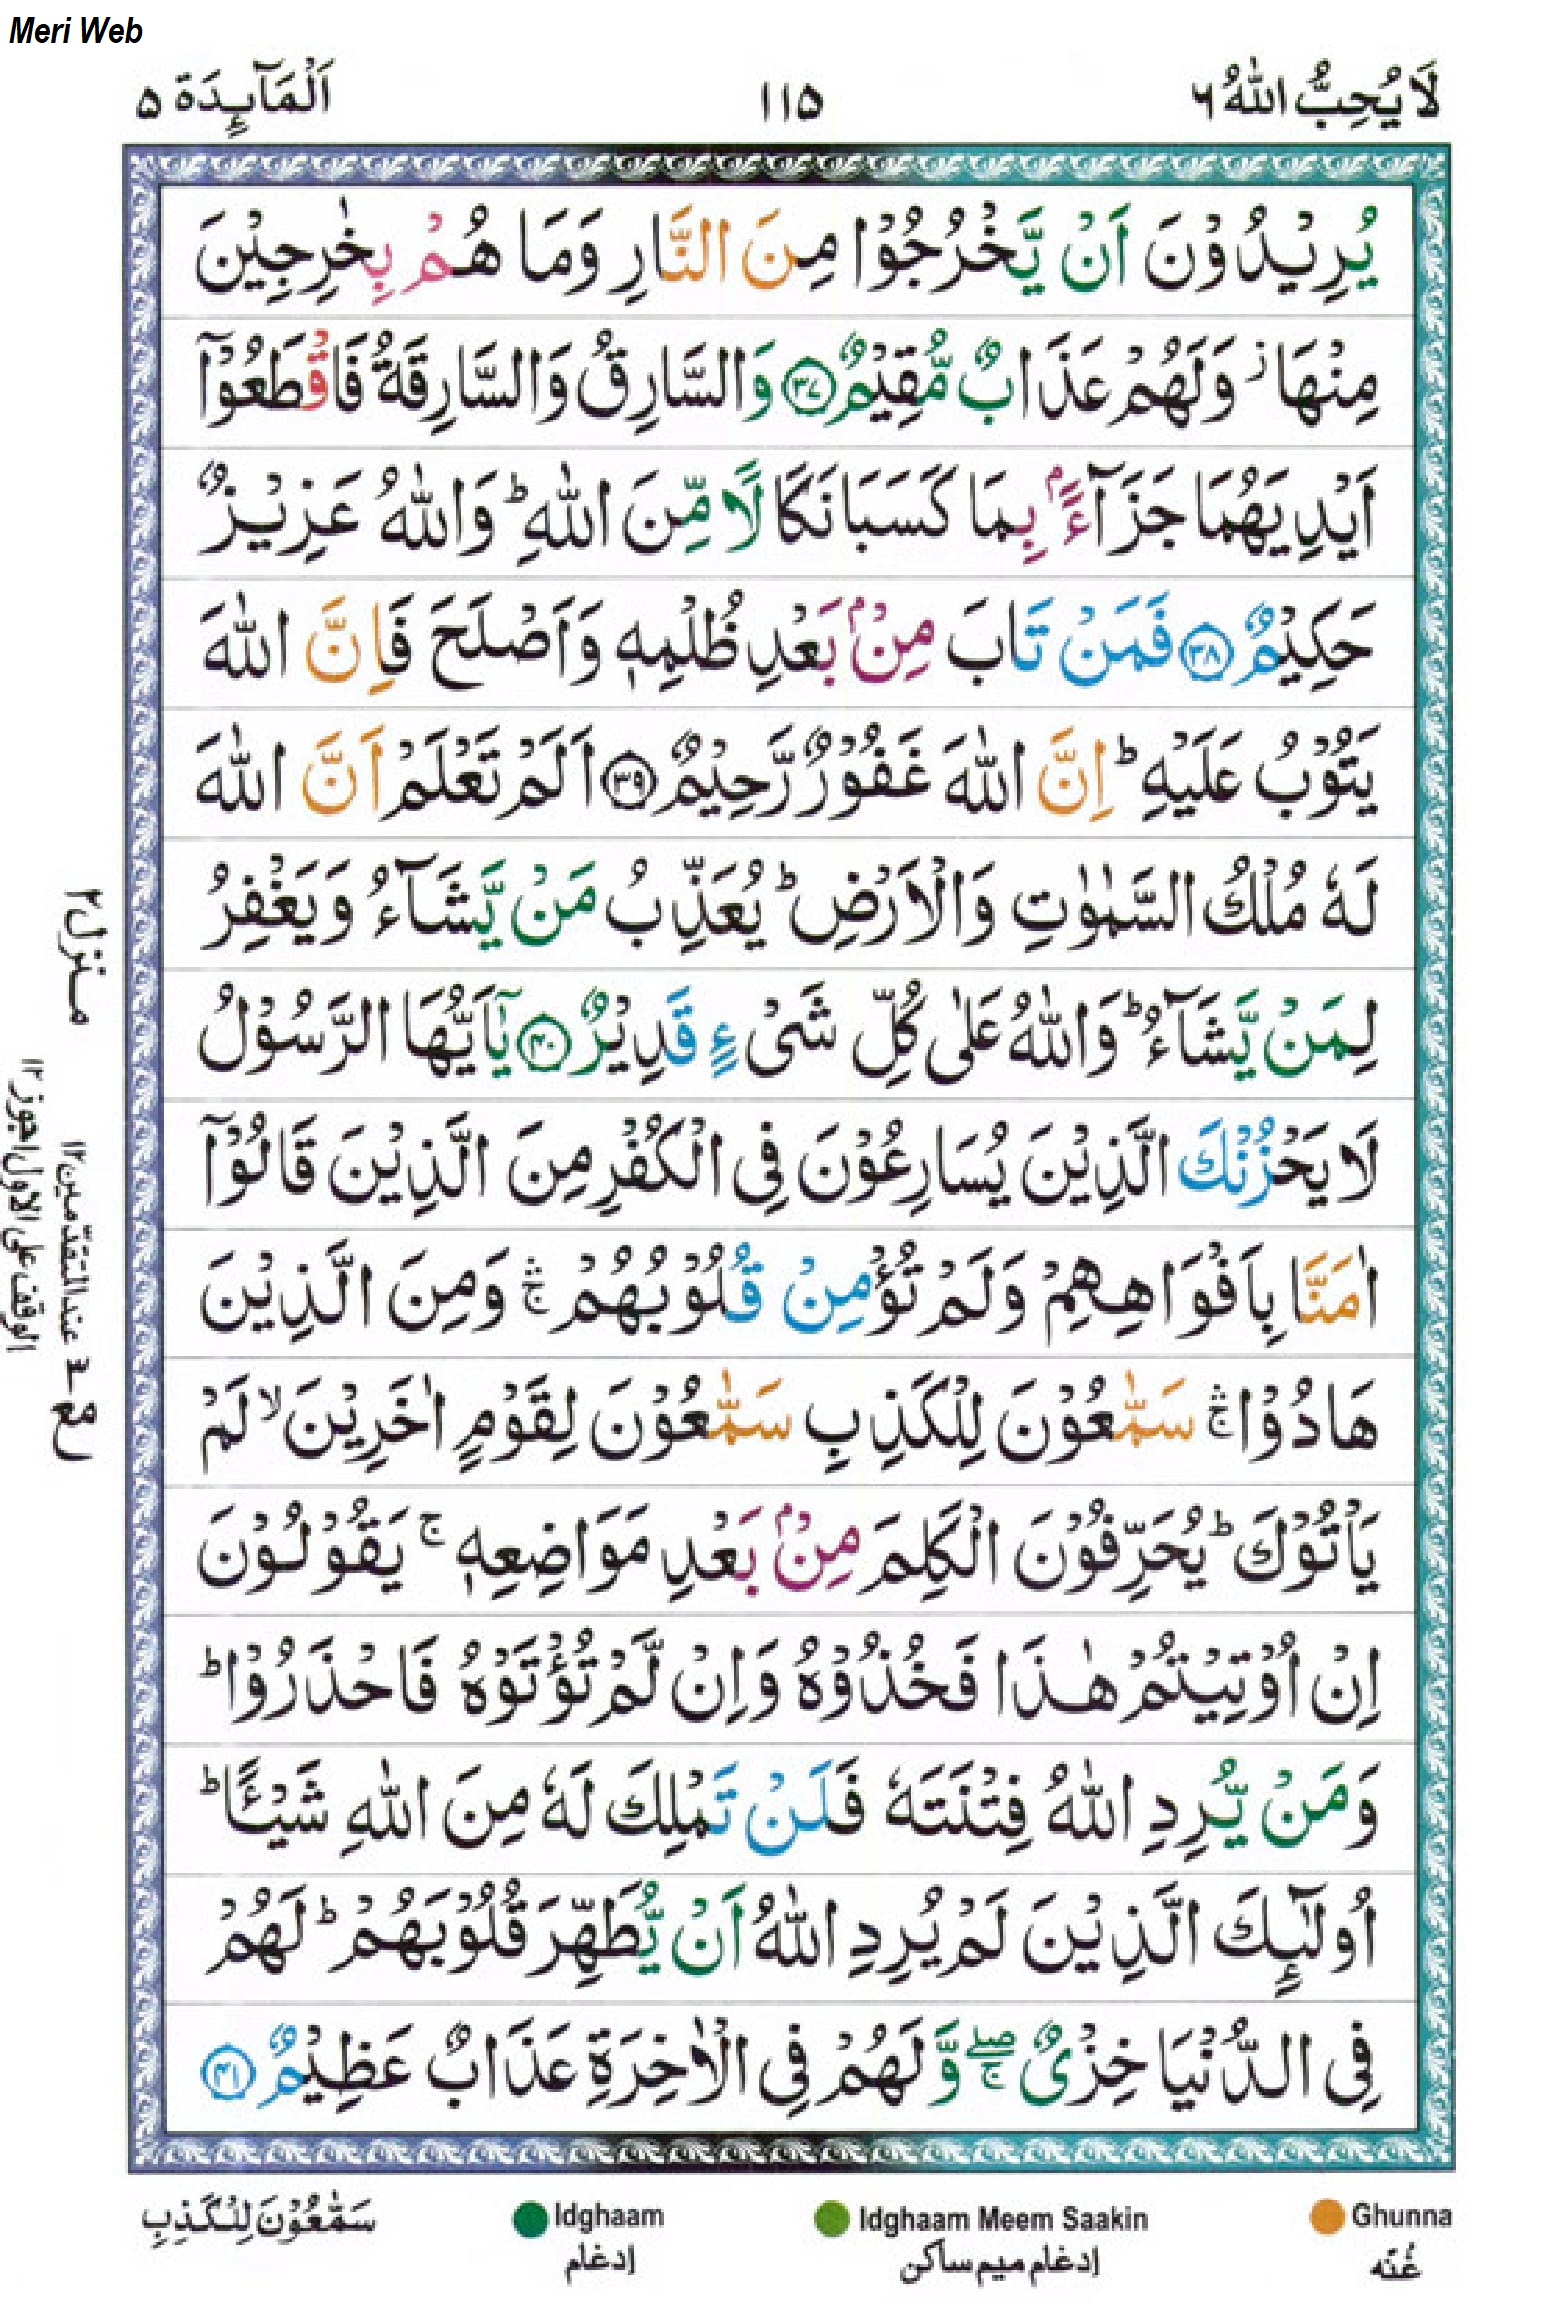 Meri Web
لَا يُحِبُّ اللهُ ٦
١١٥
اَلْمَآىِٕدَة ٥
يُرِيْدُوْنَ اَنْ يَّخْرُجُوْا مِنَ النَّارِ وَمَا هُمْ بِخٰرِجِيْنَ
مِنْهَا ز وَلَهُمْ عَذَابٌ مُّقِيْمٌ ٣٧ وَالسَّارِقُ وَالسَّارِقَةُ فَاقْطَعُوْٓا
اَيْدِيَهُمَا جَزَآءًۢ بِمَا كَسَبَا نَكَالًا مِّنَ اللهِ ط وَاللهُ عَزِيْزٌ
حَكِيْمٌ ٣٨ فَمَنْ تَابَ مِنْۢ بَعْدِ ظُلْمِهٖ وَاَصْلَحَ فَاِنَّ اللهَ
يَتُوْبُ عَلَيْهِ ط اِنَّ اللهَ غَفُوْرٌ رَّحِيْمٌ ٣٩ اَلَمْ تَعْلَمْ اَنَّ اللهَ
لَهٗ مُلْكُ السَّمٰوٰتِ وَالْاَرْضِ ط يُعَذِّبُ مَنْ يَّشَآءُ وَيَغْفِرُ
لِمَنْ يَّشَآءُ ط وَاللهُ عَلٰى كُلِّ شَىْءٍ قَدِيْرٌ ٤٠ يٰٓاَيُّهَا الرَّسُوْلُ
لَا يَحْزُنْكَ الَّذِيْنَ يُسَارِعُوْنَ فِى الْكُفْرِ مِنَ الَّذِيْنَ قَالُوْٓا
اٰمَنَّا بِاَفْوَاهِهِمْ وَلَمْ تُؤْمِنْ قُلُوْبُهُمْ ۛج وَمِنَ الَّذِيْنَ
هَادُوْا ۛج سَمّٰعُوْنَ لِلْكَذِبِ سَمّٰعُوْنَ لِقَوْمٍ اٰخَرِيْنَ لا لَمْ
يَاْتُوْكَ ط يُحَرِّفُوْنَ الْكَلِمَ مِنْۢ بَعْدِ مَوَاضِعِهٖ ج يَقُوْلُوْنَ
اِنْ اُوْتِيْتُمْ هٰذَا فَخُذُوْهُ وَاِنْ لَّمْ تُؤْتَوْهُ فَاحْذَرُوْا ط
وَمَنْ يُّرِدِ اللهُ فِتْنَتَهٗ فَلَنْ تَمْلِكَ لَهٗ مِنَ اللهِ شَيْـًٔا ط
اُولٰٓىِٕكَ الَّذِيْنَ لَمْ يُرِدِ اللهُ اَنْ يُّطَهِّرَ قُلُوْبَهُمْ ط لَهُمْ
فِى الدُّنْيَا خِزْىٌ صلےج وَّلَهُمْ فِى الْاٰخِرَةِ عَذَابٌ عَظِيْمٌ ٤١
منزل ٢
ع
عند المتقدمين ١٢
الوقف على الاول اجوز ١٢
Ghunna
غُنّه
Idghaam Meem Saakin
إدغام ميم ساكن
Idghaam
إدغام
سَمّٰعُوْنَ لِلْكَذِبِ